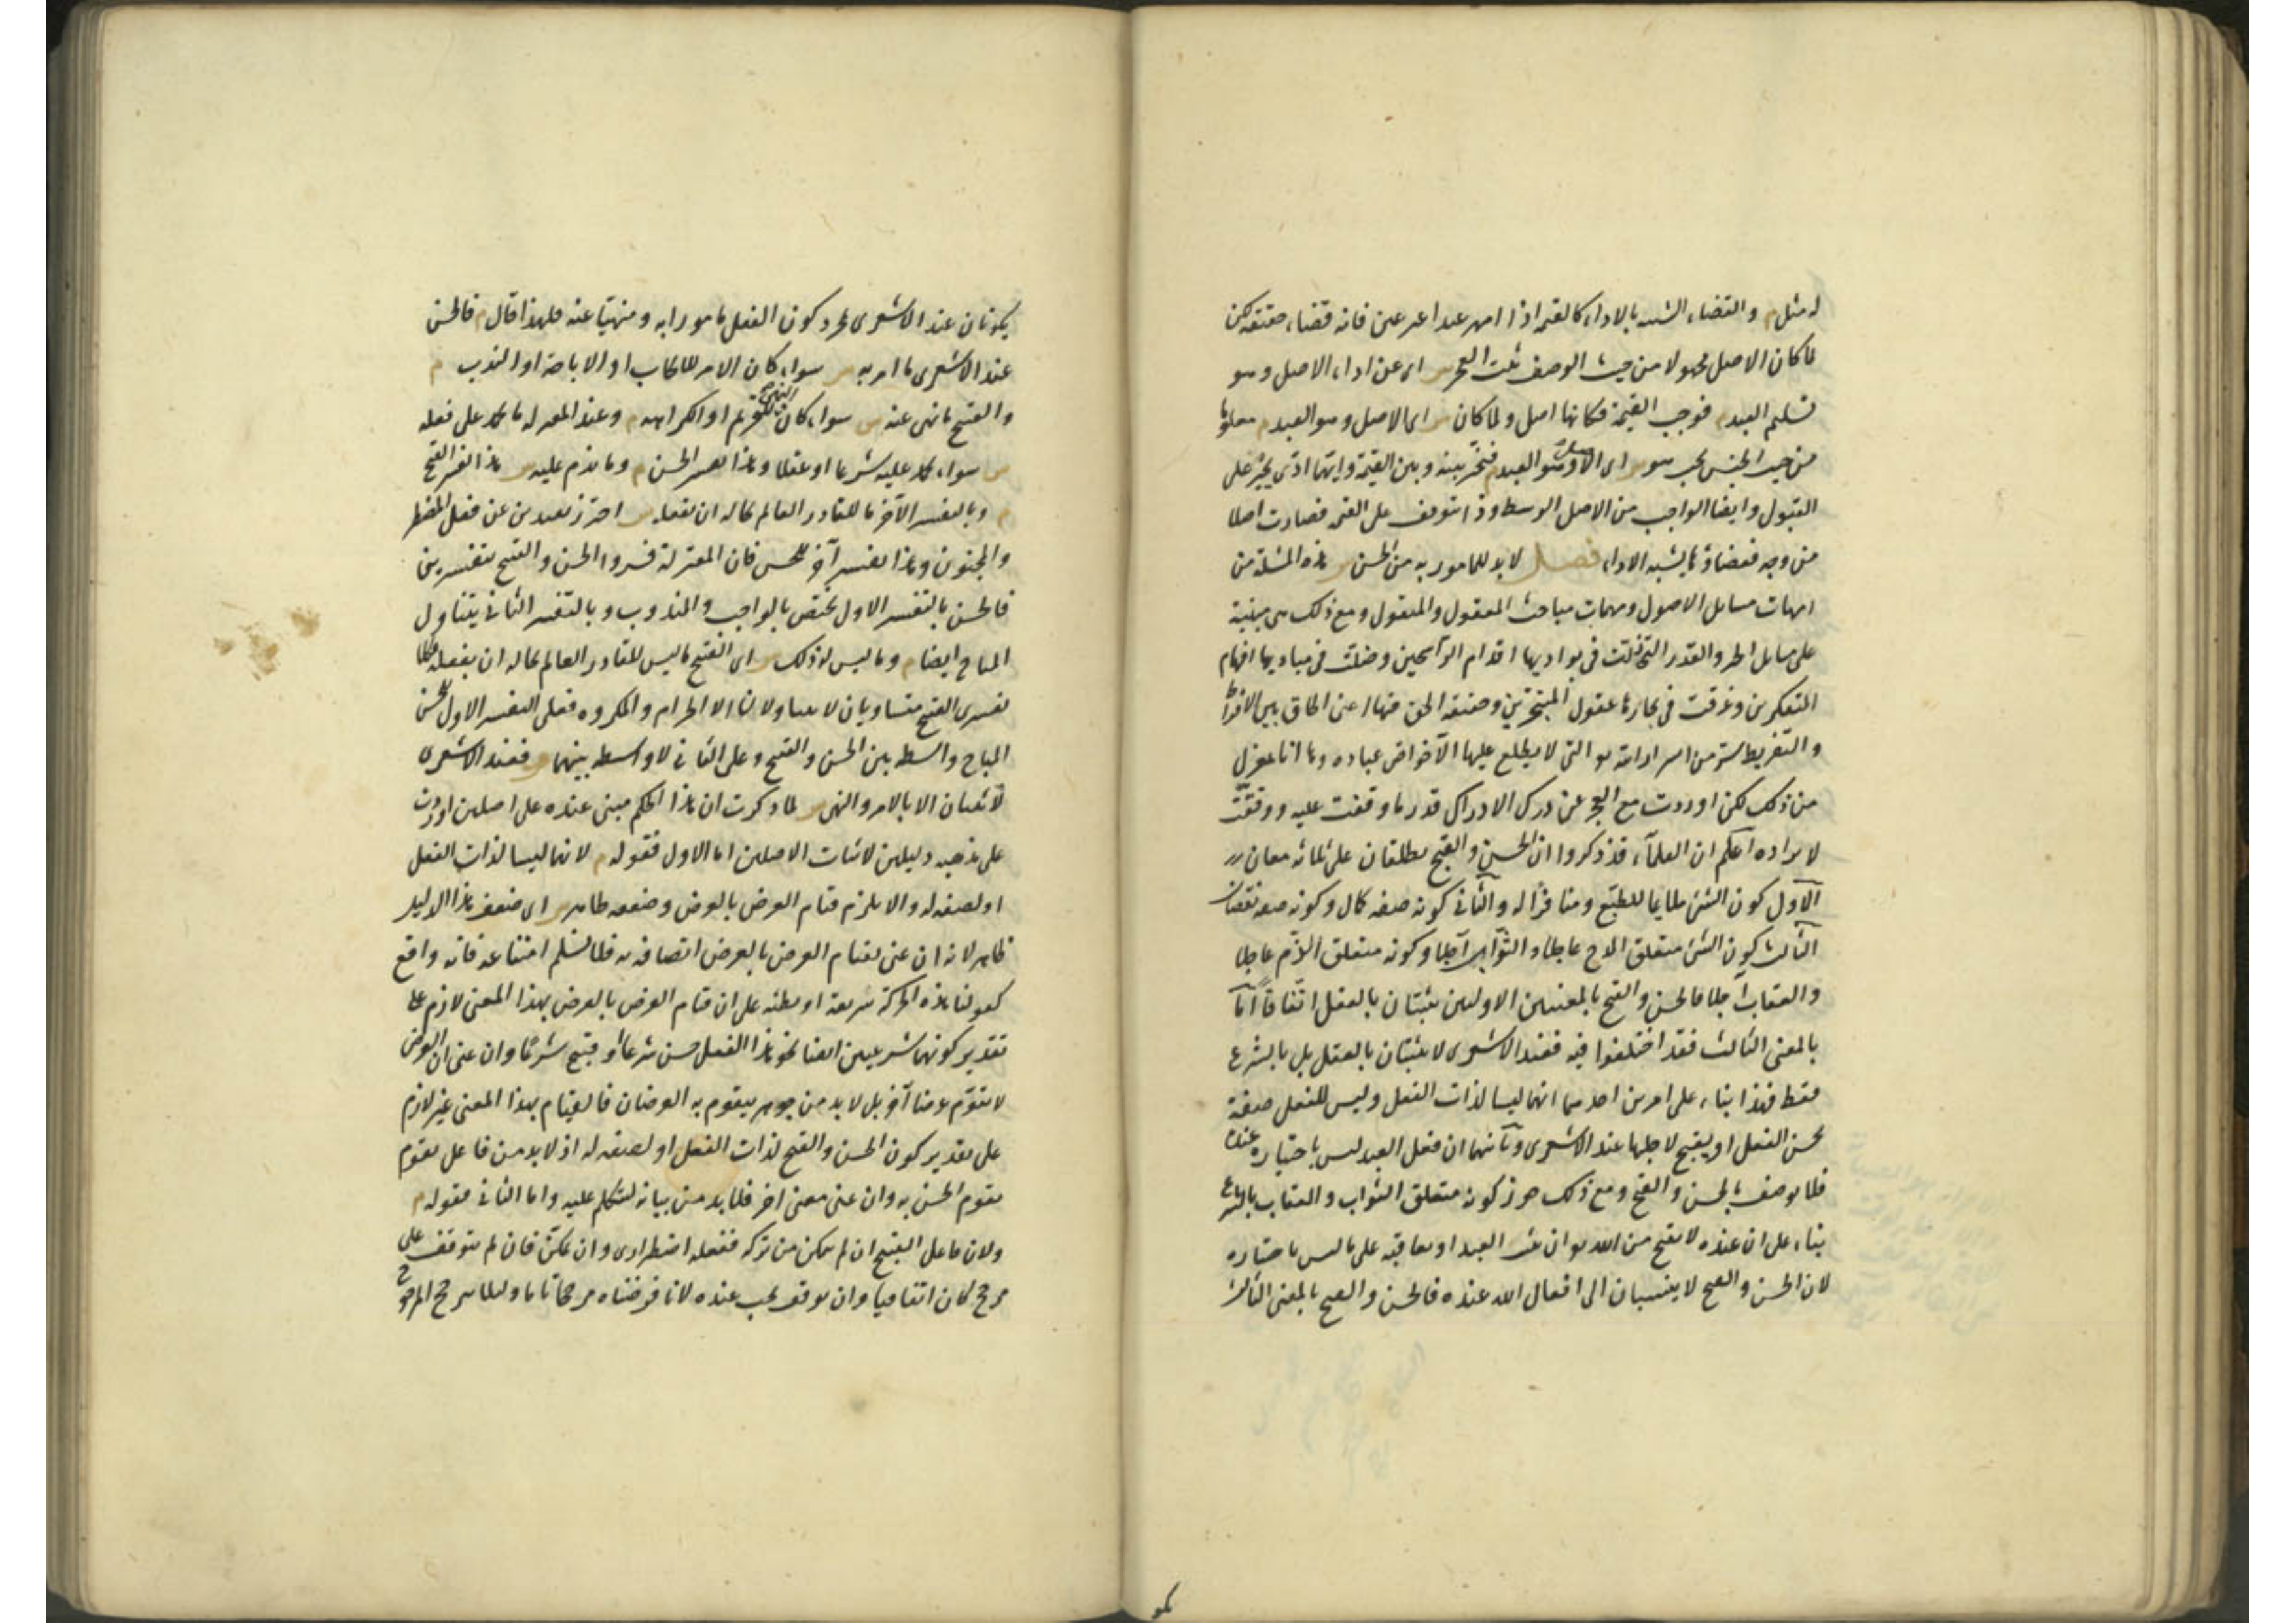 له مثل م والقضاء الشبيه بالاداء كالقيمة اذا امهر عبدا غير عين فانه قضاء حقيقة لكن
لما كان الاصل مجهولا من حيث الوصف ثبت العجز س اى عن اداء الاصل وهو
تسليم العبد م فوجب القيمة فكانها اصل ولما كان س اى الاصل وهو العبد م معلوما
من حيث الجنس يجب هو س اى الاصل وهو العبد م فيخير بينه وبين القيمة وايهما ادّى يجبر على
القبول وايضا الواجب من الاصل الوسط وذا يتوقف على القيمة فصارت اصلا
من وجه فقضاؤها يشبه الاداء فصل لابد للمامور به من الحسن س هذه المسئلة من
امهات مسائل الاصول ومهمات مباحث المعقول والمنقول ومع ذلك هى مبنية
على مسائل الجبر والقدر التى زلت فى بواديها اقدام الراسخين وضلت فى مباديها افهام
المتفكرين وغرقت فى بحارها عقول المتبحرين وحقيقة الحق فيها اعنى الحاق بين الافراط
والتفريط سرّ من اسرار الله تع التى لا يطلع عليها الا خواص عباده وها انا بمعزل
من ذلك لكن اوردت مع العجز عن درك الادراك قدر ما وقفت عليه ووفقت
لايراده اعلم ان العلماء قد ذكروا ان الحسن والقبح يطلقان على ثلاثة معان
الاول كون الشئ ملايما للطبع ومنافرا له والثانى كونه صفة كمال وكونه صفة نقصان
الثالث كون الشئ متعلق المدح عاجلا والثواب آجلا وكونه متعلق الذم عاجلا
والعقاب آجلا فالحسن والقبح بالمعنيين الاولين يثبتان بالعقل اتفاقا اما
بالمعنى الثالث فقد اختلفوا فيه فعند الاشعرى لا يثبتان بالعقل بل بالشرع
فقط فهذا بناء على امرين احدهما انهما ليسا لذات الفعل وليس للفعل صفة
يحسن الفعل او يقبح لاجلها عند الاشعرى وثانيهما ان فعل العبد ليس باختياره عنده
فلا يوصف بالحسن والقبح ومع ذلك جوز كونه متعلق الثواب والعقاب بالشرع
بناء على ان عنده لا يقبح من الله تع ان يثيب العبد او يعاقبه على ما ليس باختياره
لان الحسن والقبح لا ينسبان الى افعال الله عنده فالحسن والقبح بالمعنى الثالث
يكونان عند الاشعرى لمجرد كون الفعل مامورا به ومنهيا عنه فلهذا قال م فالحسن
عند الاشعرى ما امر به س سواء كان الامر للايجاب او الاباحة او الندب م
والقبيح ما نهى عنه س سواء كان النهى للتحريم او الكراهة م وعند المعتزلة ما يحمد على فعله
س سواء يحمد عليه شرعا او عقلا وهذا تفسير الحسن م وما يذم عليه س هذا تفسير القبيح
م وبالتفسير الآخر ما للقادر العالم بحاله ان يفعله س احترز بقيدين عن فعل المضطر
والمجنون وهذا تفسير آخر للحسن فان المعتزلة فسروا الحسن والقبح بتفسيرين
فالحسن بالتفسير الاول يختص بالواجب والمندوب وبالتفسير الثانى يتناول
المباح ايضا م وما ليس له ذلك س اى القبيح ما ليس للقادر العالم بحاله ان يفعله فكلا
تفسيرى القبيح متساويان لا يتناولان الا الحرام والمكروه فعلى التفسير الاول للحسن
المباح واسطة بين الحسن والقبيح وعلى الثانى لا واسطة بينهما م فعند الاشعرى
لا يثبتان الا بالامر والنهى س لما ذكرت ان هذا الحكم مبنى عنده على اصلين اوردت
على مذهبه دليلين لاثبات الاصلين اما الاول فقوله م لانهما ليسا لذات الفعل
او لصفة له والا يلزم قيام العرض بالعرض وضعفه ظاهر س اى ضعف هذا الدليل
ظاهر لانه ان عنى بقيام العرض بالعرض اتصافه به فلا نسلم امتناعه فانه واقع
كقولنا هذه الحركة سريعة او بطئة على ان قيام العرض بالعرض بهذا المعنى لازم على
تقدير كونهما شرعيين ايضا نحو هذا الفعل حسن شرعا او قبيح شرعا وان عنى ان العرض
لا يقوم عرضا آخر بل لا بد من جوهر يقوم به العرضان فالقيام بهذا المعنى غير لازم
على تقدير كون الحسن والقبح لذات الفعل او لصفة له اذ لا بد من فاعل يقوم
يقوم الحسن به وان عنى معنى اخر فلا بد من بيانه لنتكلم عليه واما الثانى فقوله م
ولان فاعل القبيح ان لم يتمكن من تركه ففعله اضطرارى وان تمكن فان لم يتوقف على
مرجح كان اتفاقيا وان توقف يجب عنده لانا فرضناه مرجحا تاما ولئلا يترجح المرجوح